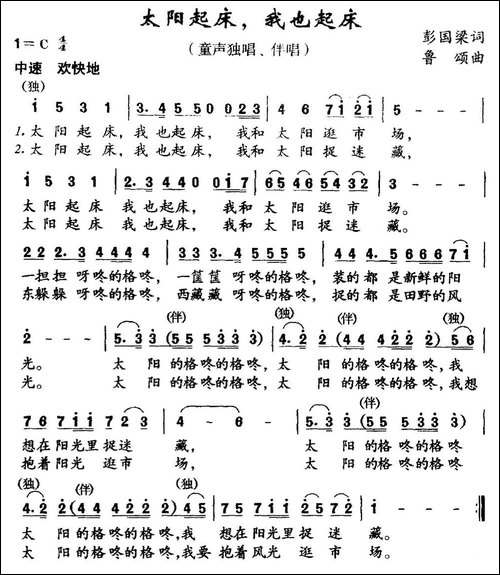 太阳起床，我也起床
1=C 4/4
（童声独唱、伴唱）
彭国梁词
鲁 颂曲
中速 欢快地
（独）
1 5 3 1 | 3. 4 5 5 0 0 0 2 3 | 4 6 7 1 2 1 | 5 - - - |
1. 太 阳 起 床， 我 也 起 床， 我和 太 阳 逛 市 场，
2. 太 阳 起 床， 我 也 起 床， 我和 太 阳 捉 迷 藏，
1 5 3 1 | 2. 3 4 4 0 0 1 7 | 6 5 4 6 5 4 3 2 | 3 - - - |
太 阳 起 床 我 也 起 床， 我和 太 阳 逛 市 场。
太 阳 起 床 我 也 起 床， 我和 太 阳 捉 迷 藏。
2 2 2. 3 4 4 4 4 | 3 3 3. 4 5 5 5 5 | 4 4 4. 5 6 6 6 7 1 |
一担担 呀咚的格咚， 一筐筐 呀咚的格咚， 装的都 是新鲜的阳
东躲躲 呀咚的格咚， 西藏藏 呀咚的格咚， 捉的都 是田野的风
（伴） （独） （伴）
2 - - - | 5. 3 3 (5 5 5 3 3 3) | 4. 2 2 (4 4 4 2 2 2) 5 |
光。 太 阳 的格咚的格咚， 太 阳 的格咚的格咚，我
光。 太 阳 的格咚的格咚， 太 阳 的格咚的格咚，我想
（伴）
7 6 7 1 1 7 2 3 | 4 - - 6 | 5. 3 3 (5 5 5 3 3 3) |
想在阳光里捉迷 藏， 太 阳 的格咚的格咚
抱着阳光 逛市 场， 太 阳 的格咚的格咚
（独） （伴） （独）
4. 2 2 (4 4 4 2 2 2) 4 | 7 5 7 1 1 7 1 2 | 1 - - 0 :||
太 阳 的格咚的格咚,我 想在阳光里捉 迷 藏。
太 阳 的格咚的格咚,我要 抱着风光 逛 市 场。